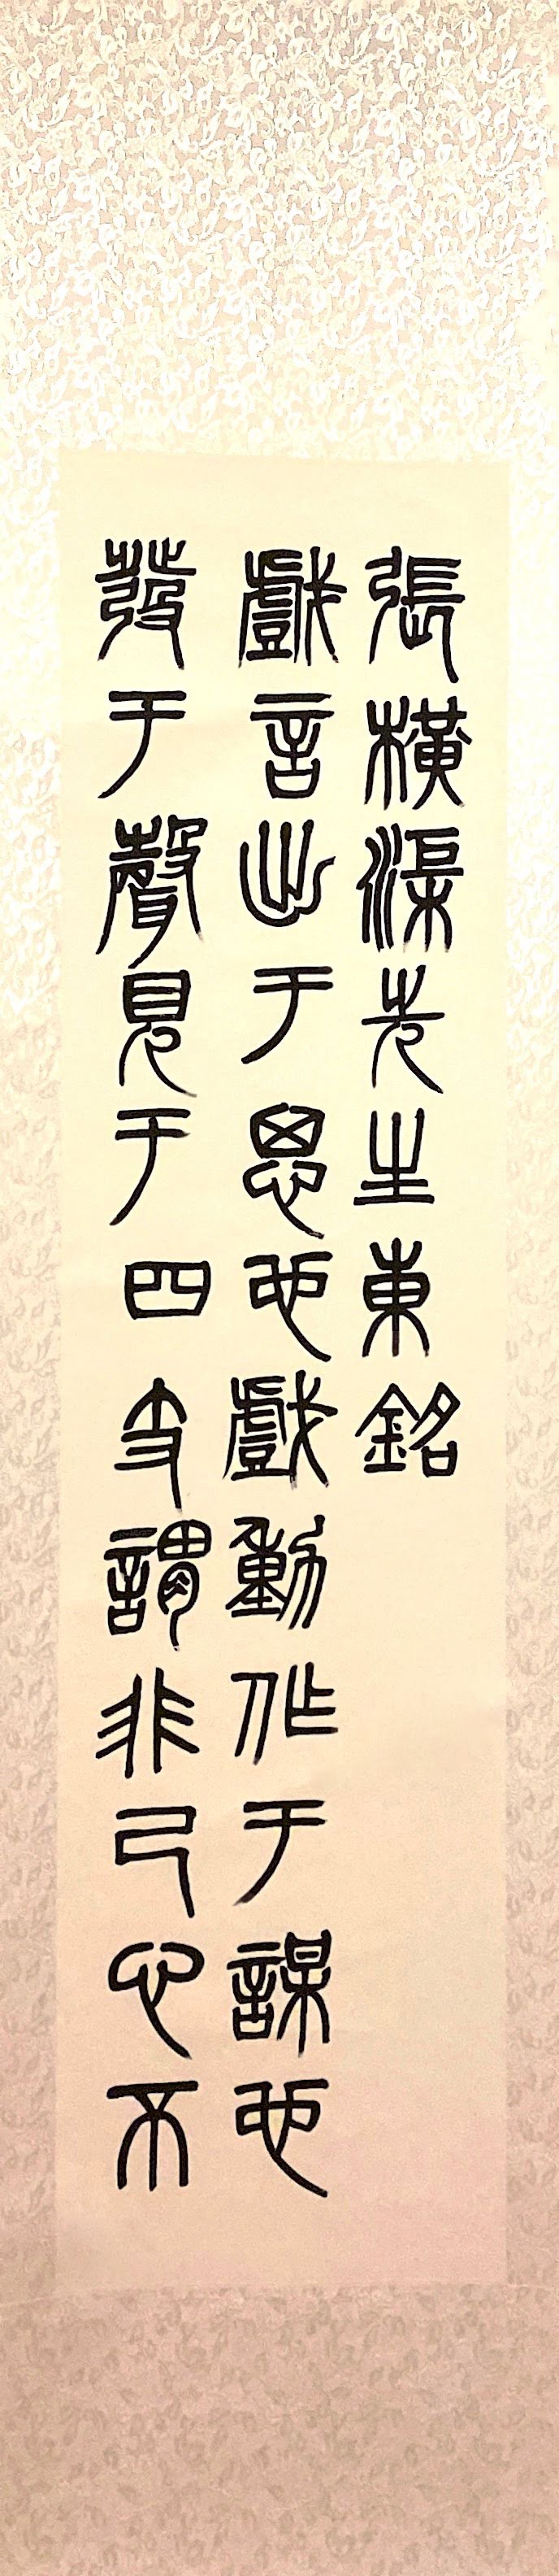 張橫渠先生東銘
戲言出于思也戲動作于謀也
發于聲見于四支謂非己心不